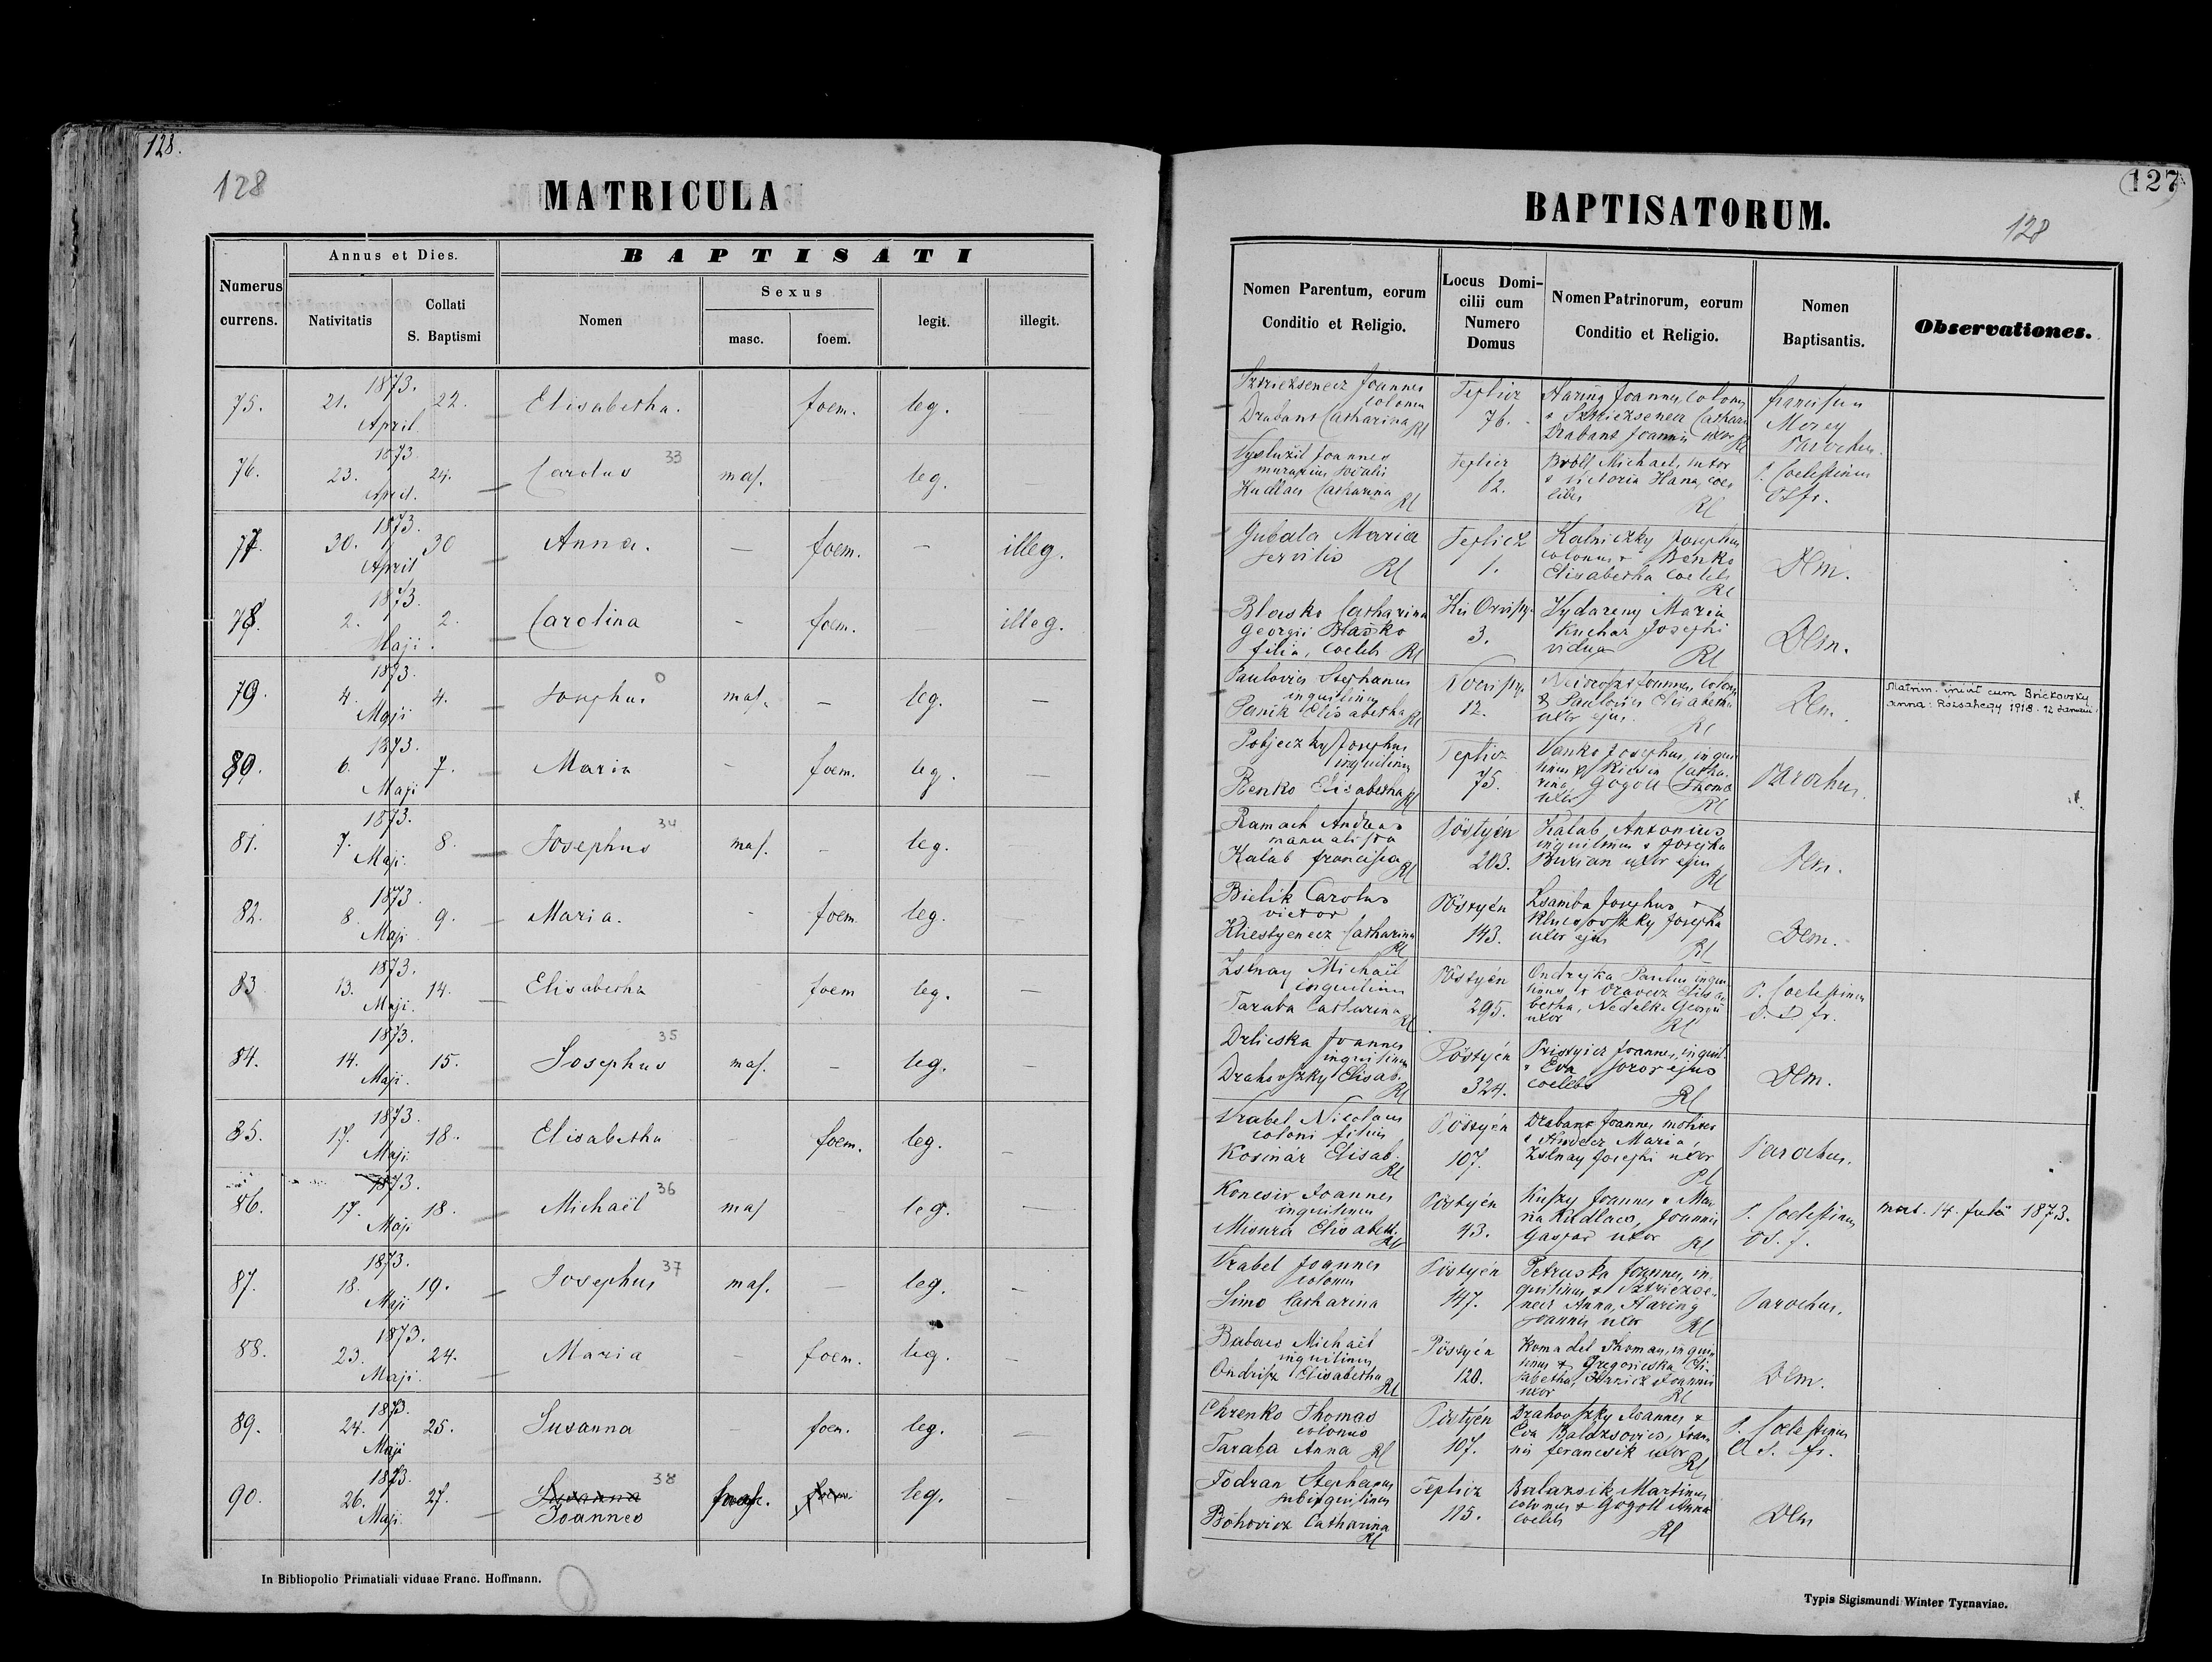 128.
128
MATRICULA
Numerus currens.
Annus et Dies.
Nativitatis
Collati S. Baptismi
BAPTISATI
Nomen
Sexus
masc.
foem.
legit.
illegit.
75. 21. 1873. April. 22. Elisabetha. — foem. leg. —
76. 23. 1873 April. 24. Carolus 33 mas. — leg. —
77. 30. 1873. April 30 Anna. — foem. — illeg.
78. 2. 1873. Maji. 2. Carolina - foem. — illeg.
79. 4. 1873. Maji 4. Josephus 0 mas. — leg. —
80. 6. 1873. Maji 7. Maria - foem. leg. —
81. 7. 1873. Maji. 8. Josephus 34 mas. - leg.
82. 8. 1873 Maji 9. Maria. - foem. leg. —
83 13. 1873. Maji. 14. Elisabetha foem leg. —
84. 14. 1873. Maji. 15. Josephus 35 mas. - leg. —
85. 17. 1873 Maji. 18. Elisabetha - foem. leg. -
86. 17. 1873. Maji 18. Michaël 36 mas — leg. —
87. 18. 1873. Maji 19. Josephus 37 mas. — leg. -
88. 23. 1873. Maji. 24. Maria - foem. leg. -
89. 24. 1873. Maji 25. Susanna - foem. leg. —
90. 26. 1873. Maji. 27. Susanna 38 Joannes mas. foem. leg. —
In Bibliopolio Primatiali viduae Franc. Hoffmann.
127
BAPTISATORUM.
128
Nomen Parentum, eorum Conditio et Religio.
Locus Domi-
cilii cum
Numero
Domus
Nomen Patrinorum, eorum Conditio et Religio.
Nomen Baptisantis.
Observationes.
Joannes
colonus
Drabant Catharina Rl
Teplicz
76.
Haring Joannes, colonus
Drabant Joannis uxor Rl
Franciscus
Mórey
Parochus.
Vyslužil Joannes
murarius
Kudlács Catharina Rl
Teplicz
62.
Michael, sutor
& Victoria Hana, coe-
libes Rl
P. Coelestinus
Gubala Maria
servilis
Rl
Teplicz
1.
Kalniczky Josephus
colonus & Benko
Elisabetha coelebs
Rl
Dem.
Blasko Catharina
Georgii Blaško
filia, coelebs Rl
3.
Vydareny Maria
Kuchar Josephi
vidua Rl
Dem.
Paulovics Stephanus
inquilinus
Elisabetha Rl
12.
Joannes, colonus
& Paulovics Elisabetha
uxor ejus. Rl
Dem.
Matrim. inivit cum Brickovsky
Anna: Rózsahegy 1918. 12 Januarii
Pobjeczky Josephus
inquilinus
Benko Elisabetha Rl
Teplicz
75.
Vanko Josephus, inqui-
linus & Catha-
rina, Gogoll Thomae
uxor Rl
Parochus.
Ramach Andreas
manualista
Kalab Francisca Rl
Pöstyén
203.
Kalab Antonius
inquilinus & Josepha
Burian uxor ejus
Rl
Dem.
Bielik Carolus
vietor
Catharina
Rl
Pöstyén
143.
Zsamba Josephus &
Josepha
uxor ejus Rl
Dem.
Zslnay Michaël
inquilinus
Taraba Catharina
Rl
Pöstyén
295.
Ondrejka Paulus inqui-
linus & Oravecz Elisa-
betha, Nedelka Georgii
uxor Rl
P. Coelestinus
Drlicska Joannes
inquilinus
Drahovszky Elisab.
Rl
Pöstyén
324.
Joannes, inquil.
& Eva soror ejus
coelebs
Rl
Dem.
Vrabel Nicolaus
coloni filius
Kosinár Elisab.
Rl
Pöstyén
107.
Drabant Joannes molitor
& Maria,
Zslnay Josephi uxor
Rl
Parochus.
Joannes
inquilinus
Misura Elisabeth.
Rl
Pöstyén
93.
Joannes & Ma-
ria Kudlacs, Joannis
Gaspar uxor Rl
P. Coelestinus
14. Julii 1873.
Vrabel Joannes
colonus
Simo Catharina
Pöstyén
147.
Petruska Joannes, in-
quilinus &
Anna, Haring
Joannis uxor Rl
Parochus.
Michaël
inquilinus
Elisabetha
Rl
Pöstyén
120.
Komadel Thomas, inqui-
linus & Gregoricska Eli-
sabetha, Joannis
uxor Rl
Dem.
Chrenko Thomas
colonus
Taraba Anna Rl
Pöstyén
107.
Drahovszky Joannes &
Eva Balazsovics, Joan-
nis Ferancsik uxor
Rl
P. Coelestinus
Todran Stephanus
subinquilinus
Bohovicz Catharina
Rl
Teplicz
115.
Martinus
colonus & Gogoll Anna
coelebs
Rl
Dem
Typis Sigismundi Winter Tyrnaviae.